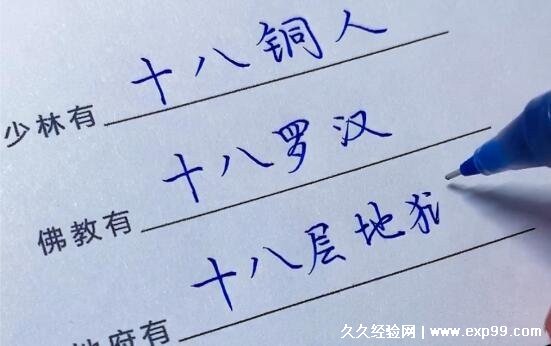 少林有 十八铜人
佛教有 十八罗汉
地府有 十八层地狱
久久经验网 www.exp99.com